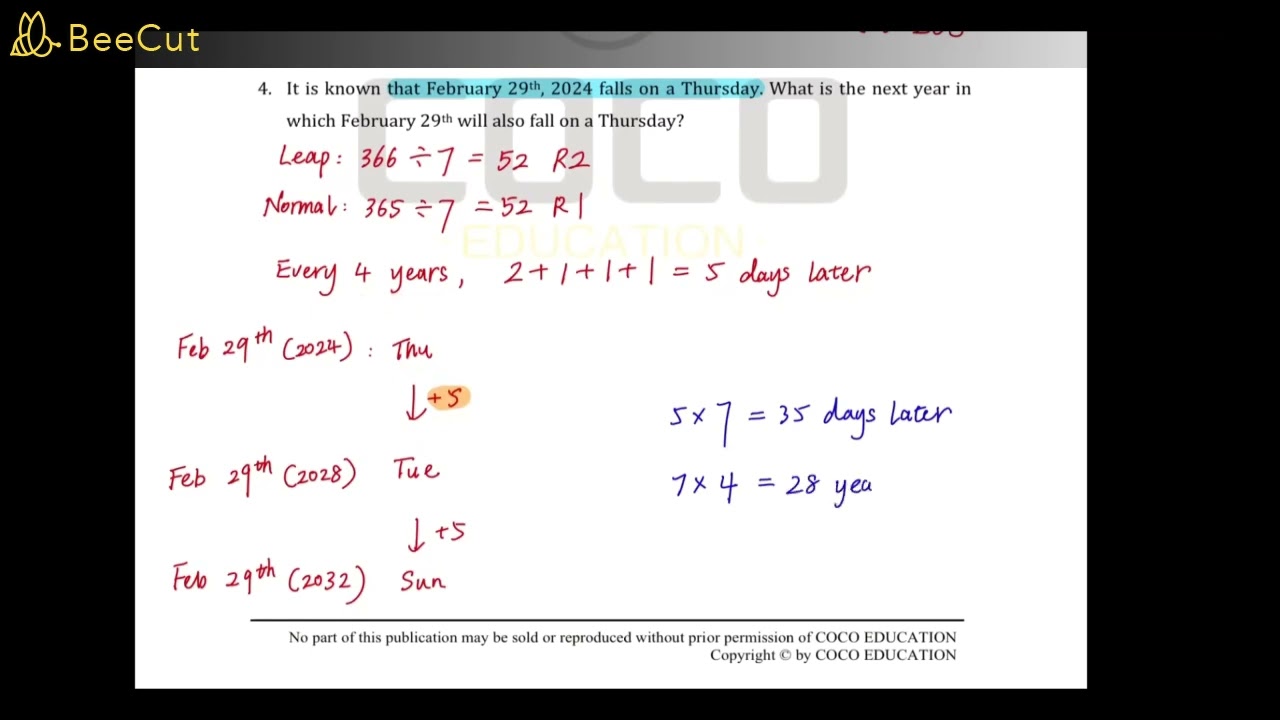 BeeCut
4. It is known that February 29th, 2024 falls on a Thursday. What is the next year in
which February 29th will also fall on a Thursday?
COCO
EDUCATION
Leap: 366 ÷ 7 = 52 R2
Normal: 365 ÷ 7 = 52 R1
Every 4 years, 2+1+1+1 = 5 days later
Feb 29th (2024): Thu
↓ +5
Feb 29th (2028) Tue
↓ +5
Feb 29th (2032) Sun
5 × 7 = 35 days later
7 × 4 = 28 yea
No part of this publication may be sold or reproduced without prior permission of COCO EDUCATION
Copyright © by COCO EDUCATION